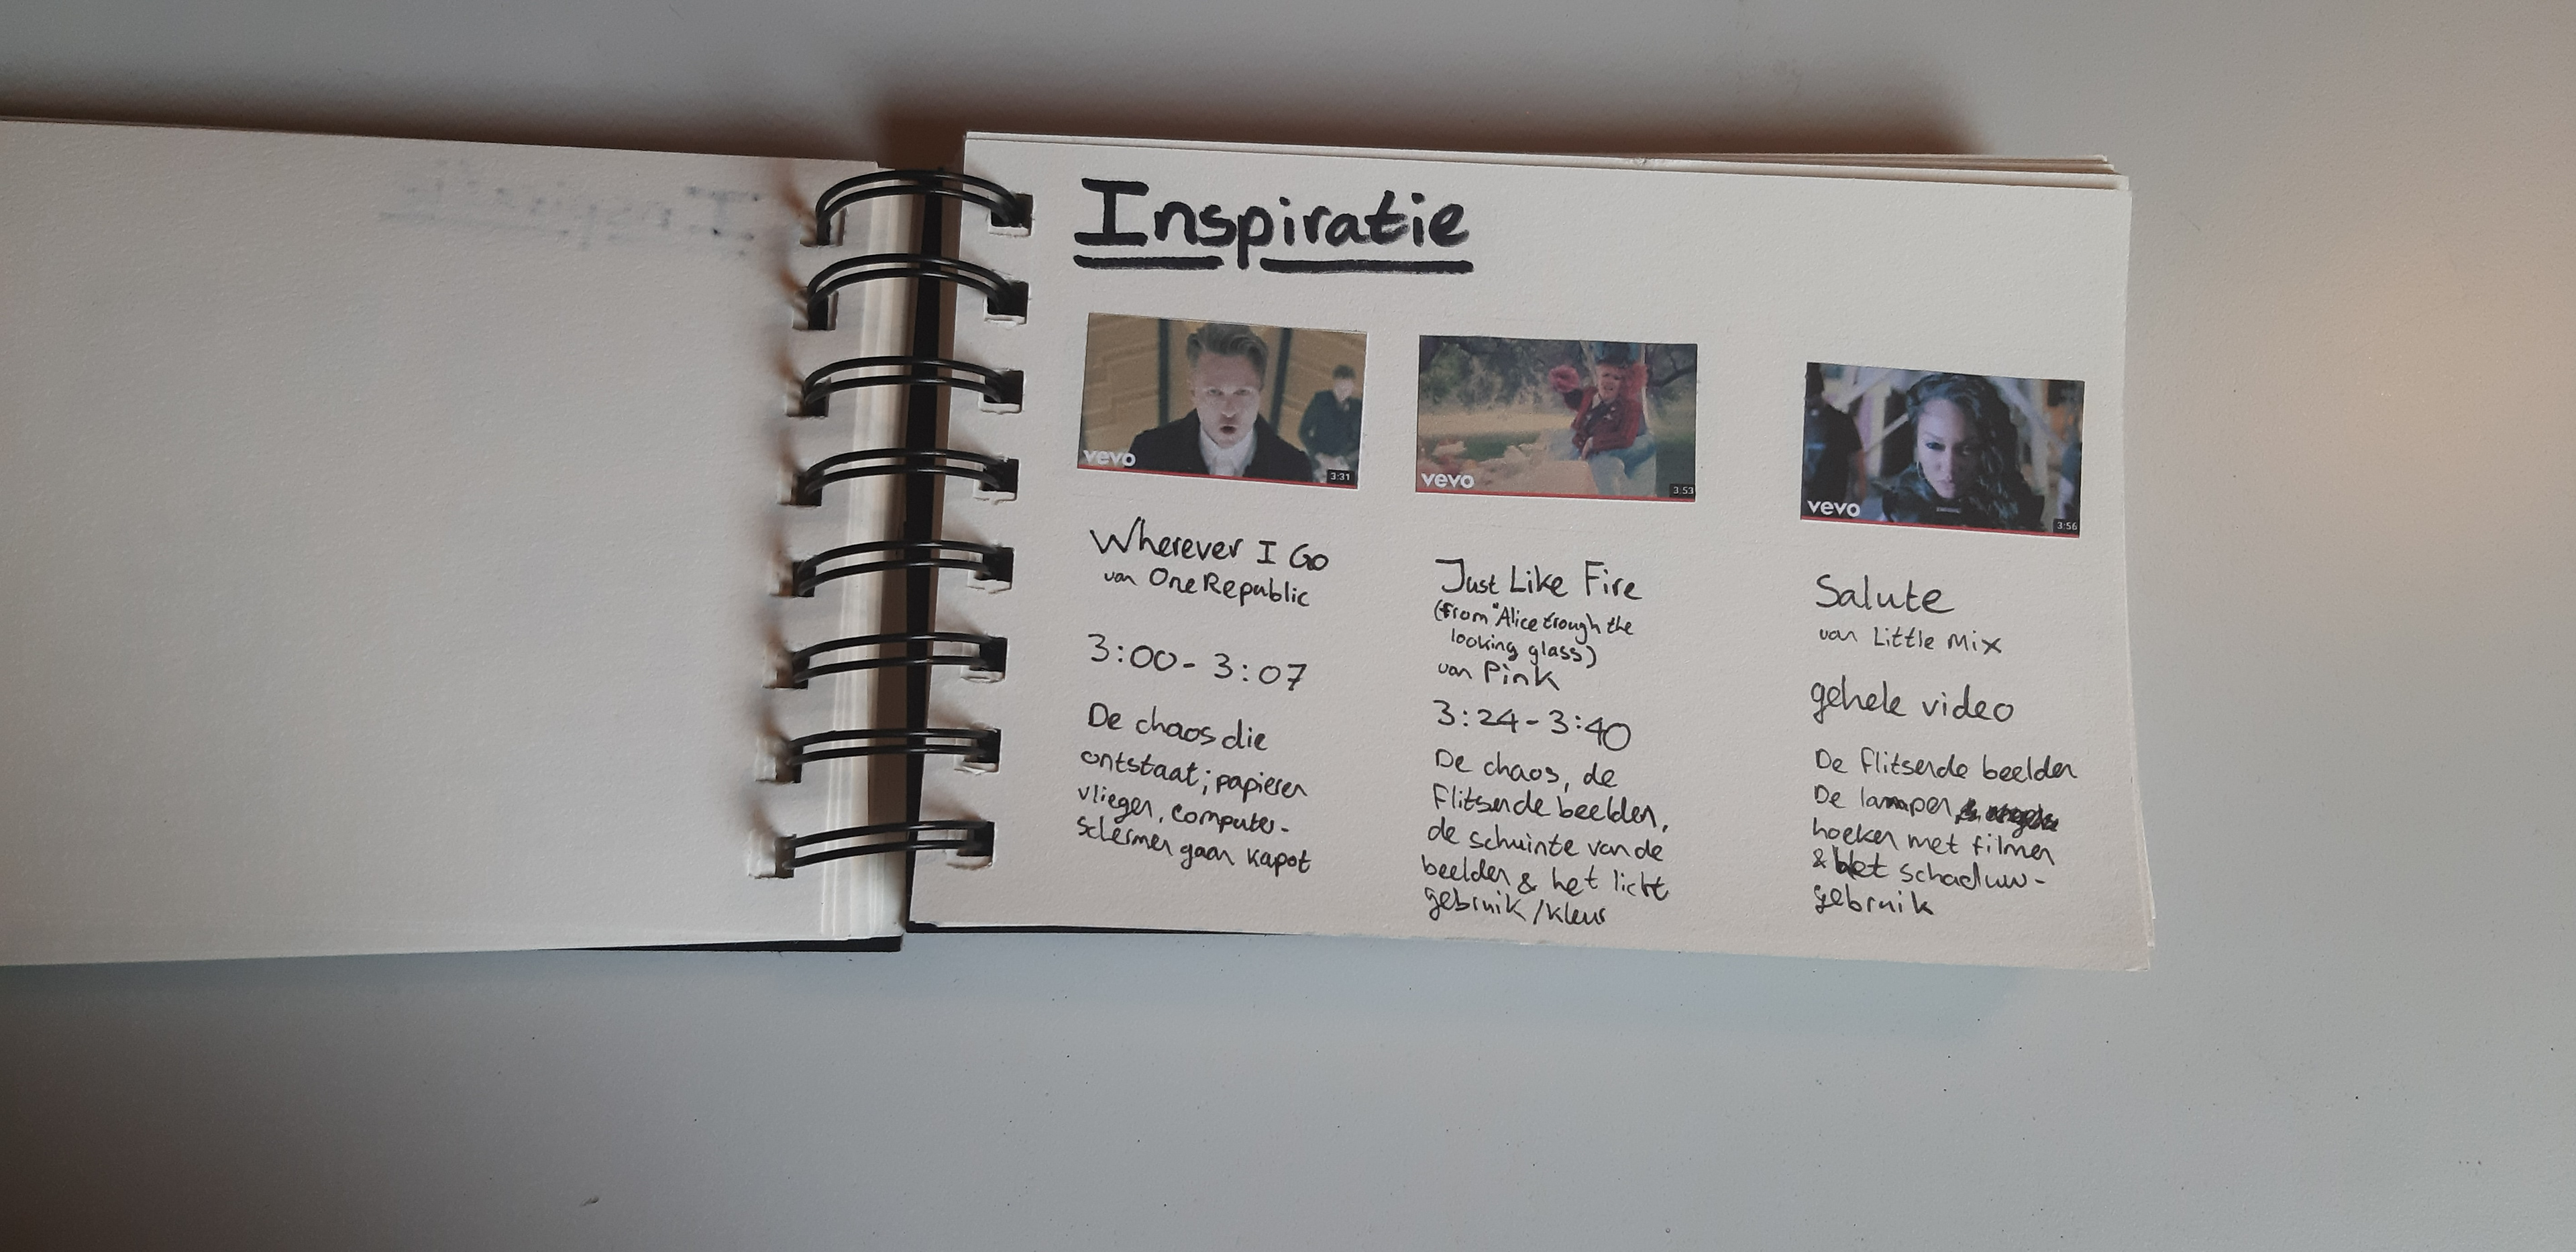 Inspiratie
vevo
3:31
Wherever I Go
van OneRepublic
3:00 - 3:07
De chaos die
ontstaat; papieren
vliegen, computer-
schermen gaan kapot
vevo
3:53
Just Like Fire
(from "Alice trough the
looking glass)
van Pink
3:24 - 3:40
De chaos, de
Flitsende beelden,
de schuinte van de
beelden & het licht
gebruik / kleur
vevo
3:56
Salute
van Little Mix
gehele video
De flitsende beelden
De lampen
hoeken met filmen
& het schaduw-
gebruik